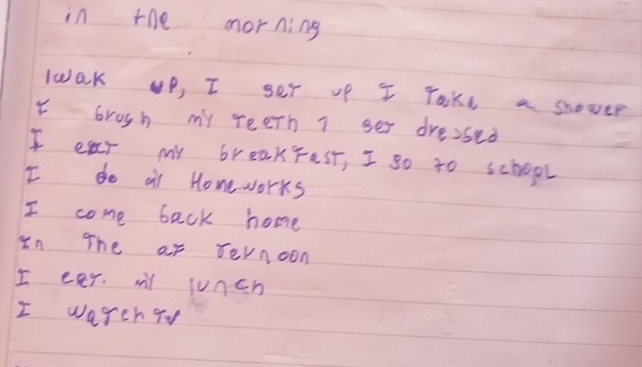 in the morning
I wak up, I get up I take a shower
I brush my teeth I get dressed
I eat my breakfast, I go to school
I do my Homeworks
I come back home
In the af ternoon
I eat. my lunch
I watch TV